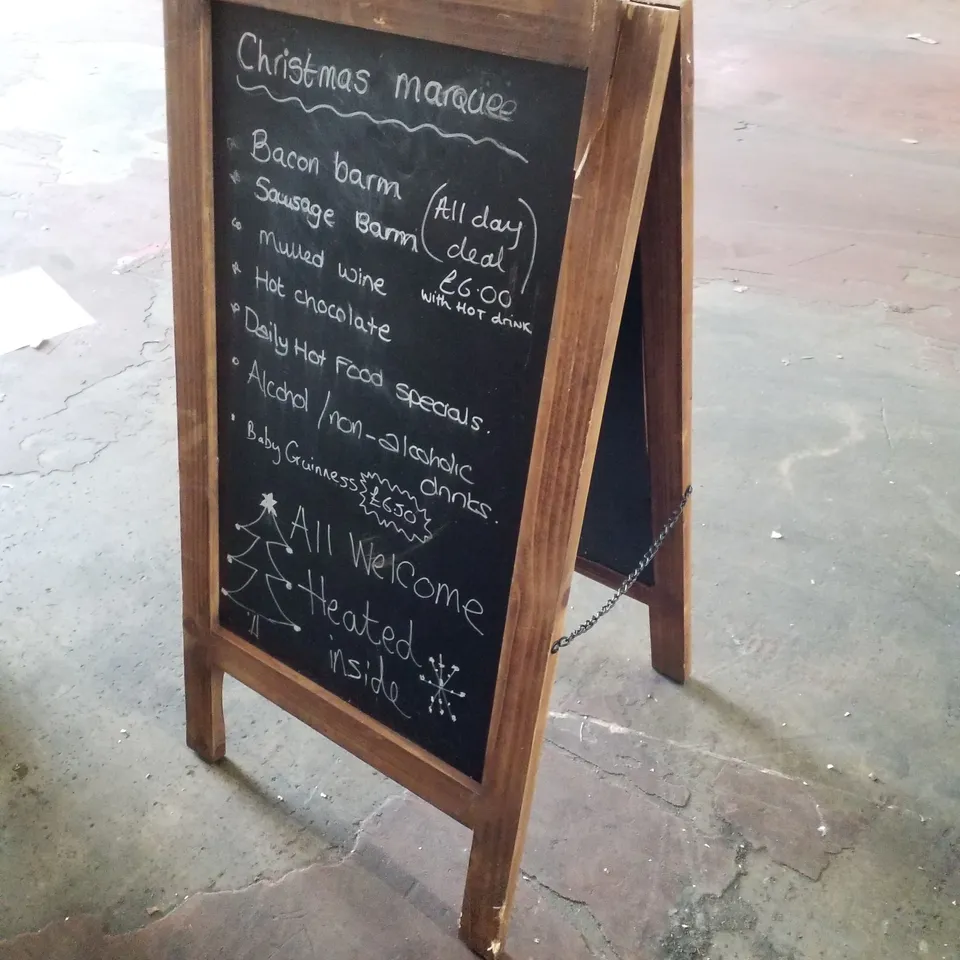 Christmas marquee
Bacon barm
Sausage Barm
(All day
deal)
£6.00
with HOT drink
Mulled wine
Hot chocolate
Daily Hot Food specials.
Alcohol / non-alcoholic
drinks.
Baby Guinness £6.50
All Welcome
Heated
inside